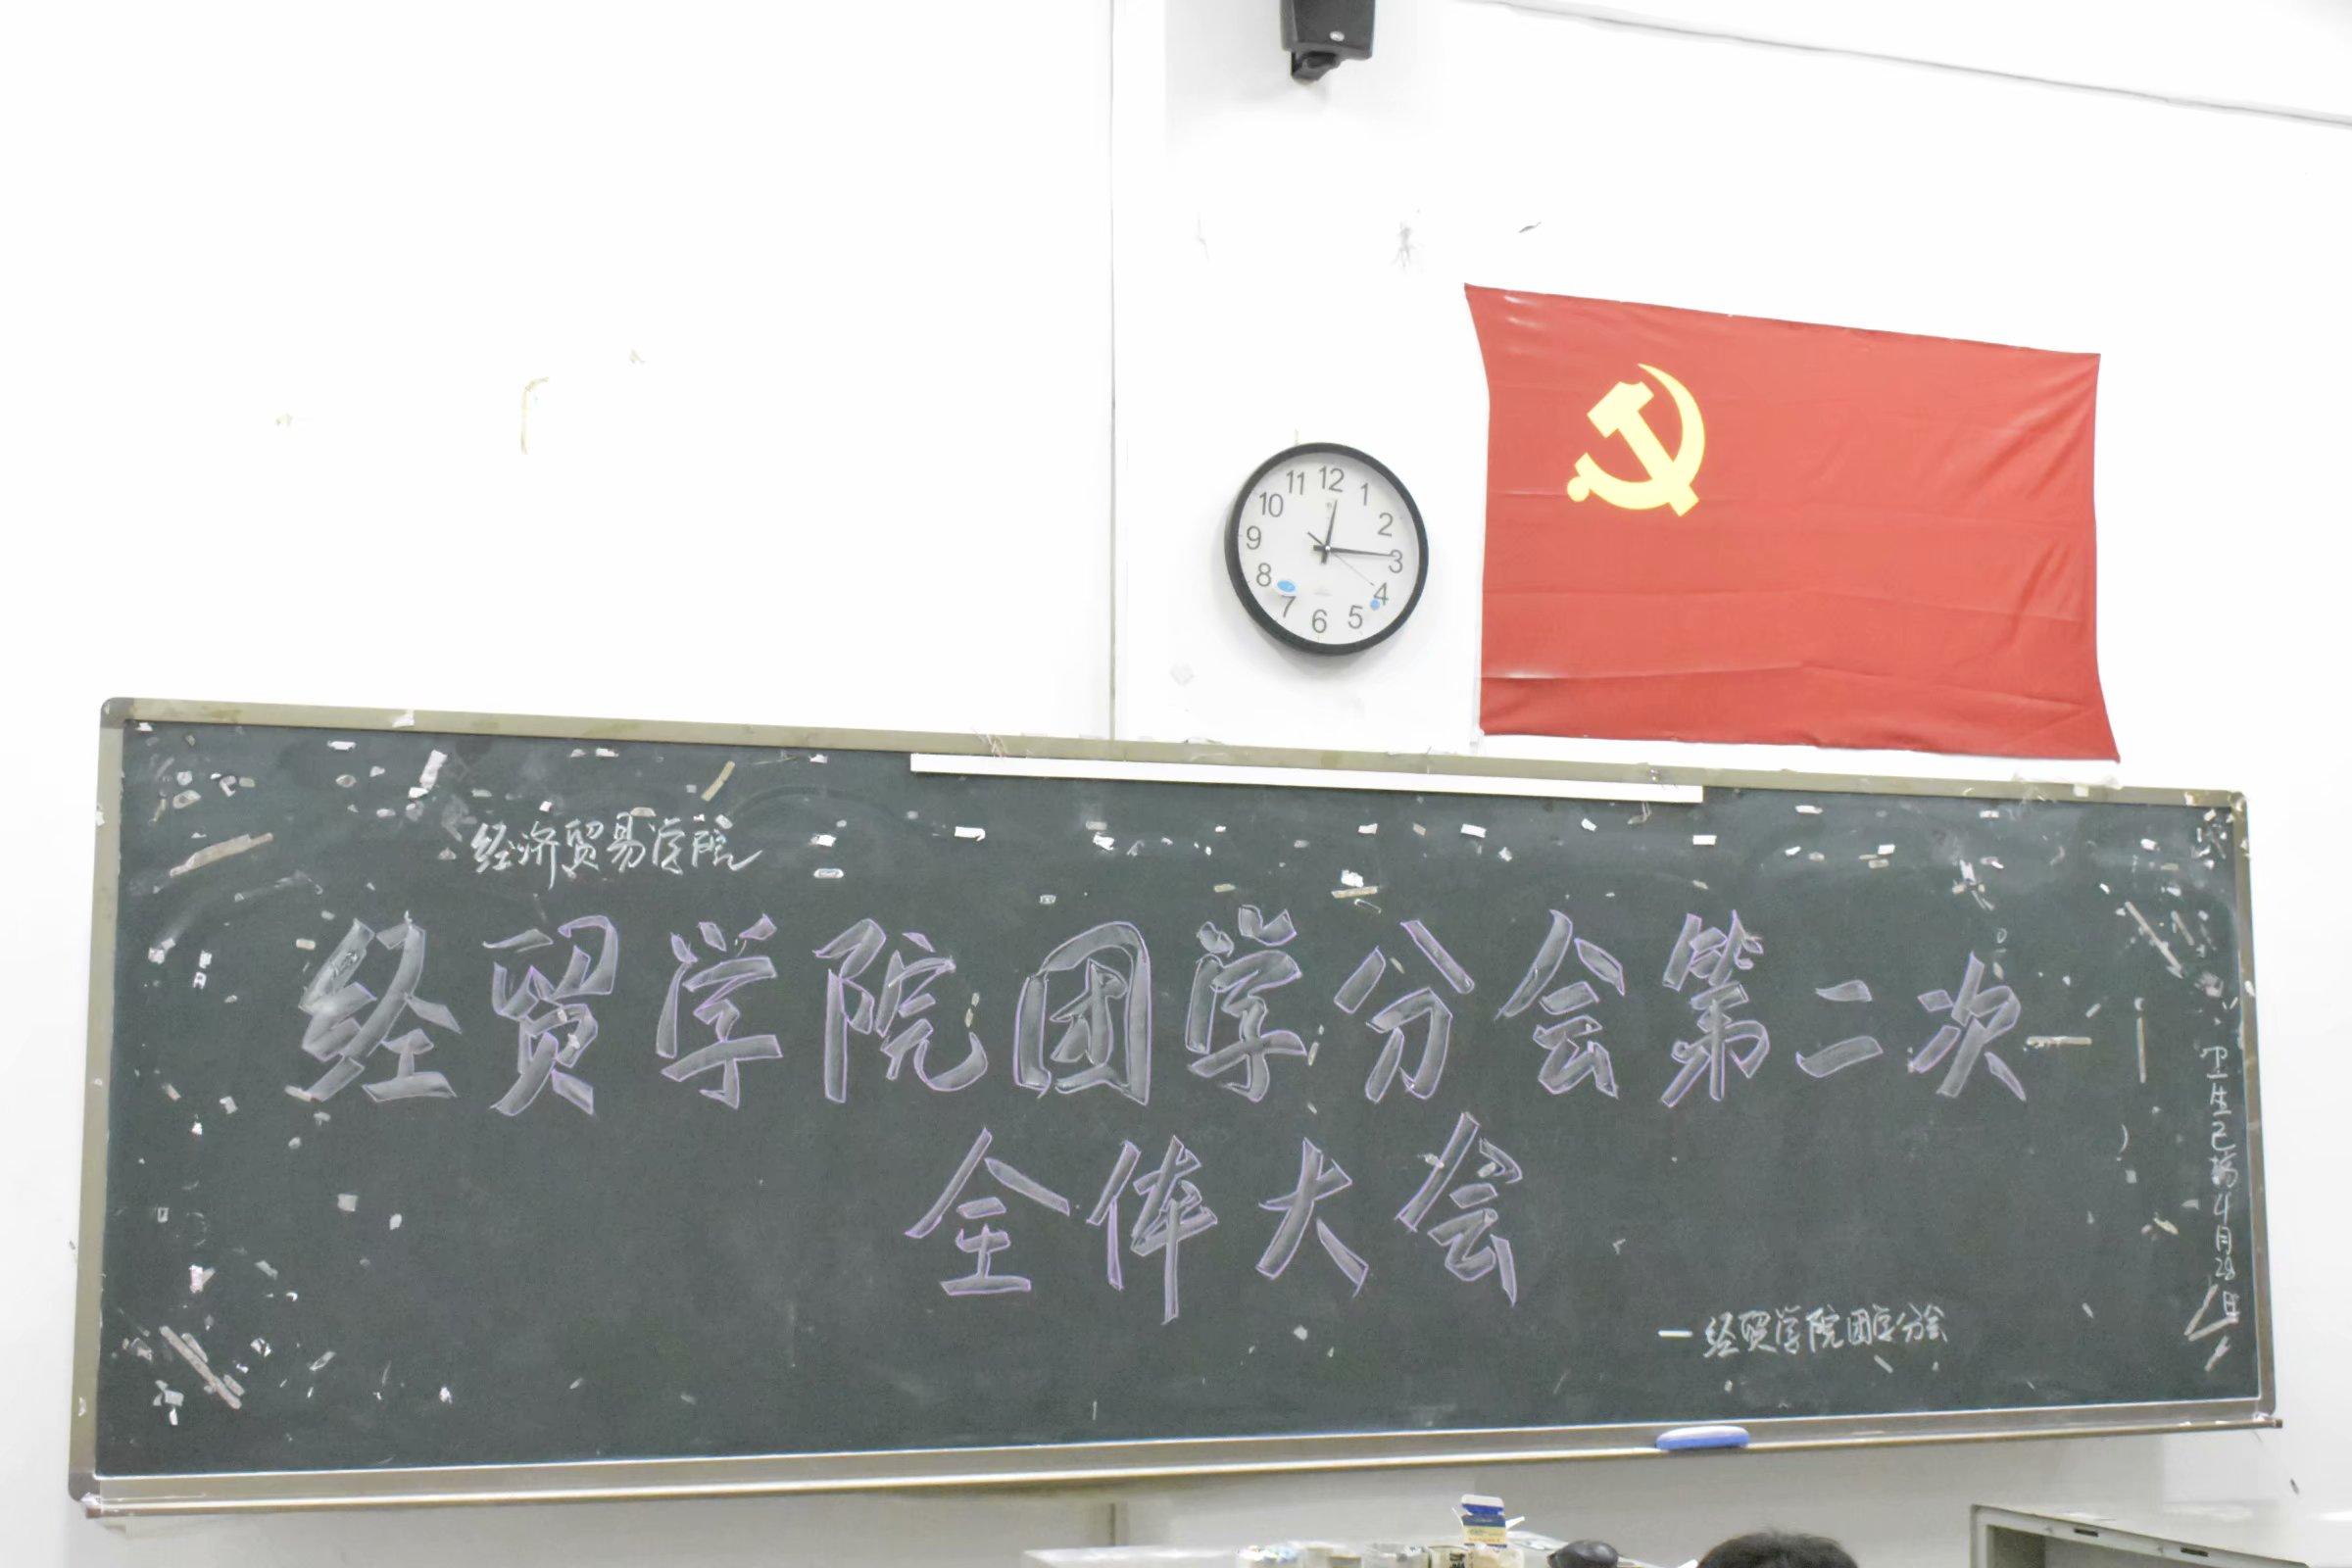 12
1
2
3
4
5
6
7
8
9
10
11
经济贸易学院
经贸学院团学分会第二次
全体大会
—经贸学院团学分会
卫生已搞4月28日